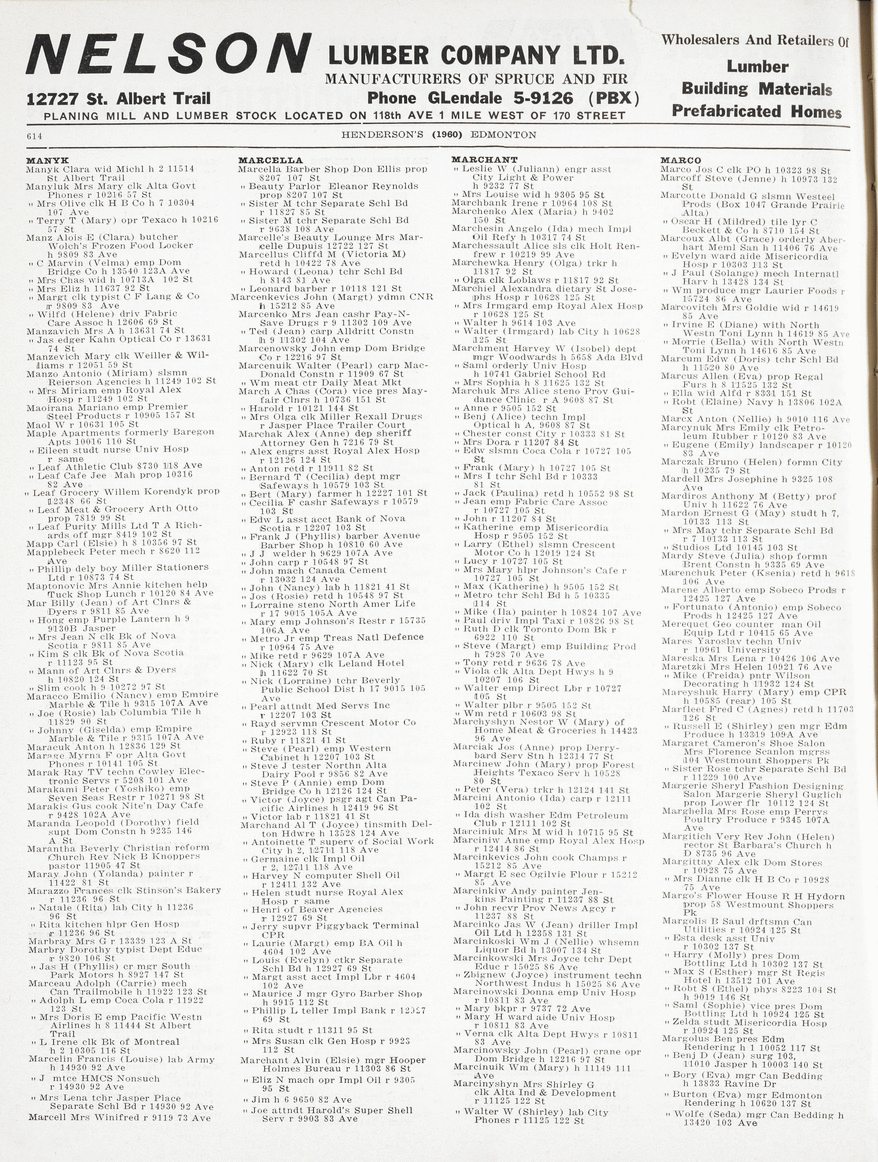 NELSON LUMBER COMPANY LTD.
MANUFACTURERS OF SPRUCE AND FIR
12727 St. Albert Trail Phone GLendale 5-9126 (PBX)
PLANING MILL AND LUMBER STOCK LOCATED ON 118th AVE 1 MILE WEST OF 170 STREET
Wholesalers And Retailers Of
Lumber
Building Materials
Prefabricated Homes
614 HENDERSON'S (1960) EDMONTON
MANYK
Manyk Clara wid Michl h 2 11514
St Albert Trail
Manyluk Mrs Mary clk Alta Govt
Phones r 10216 57 St
" Mrs Olive clk H B Co h 7 10304
107 Ave
" Terry T (Mary) opr Texaco h 10216
57 St
Manz Alois E (Clara) butcher
Wolch's Frozen Food Locker
h 9809 83 Ave
" C Marvin (Velma) emp Dom
Bridge Co h 13540 123A Ave
" Mrs Chas wid h 10713A 102 St
" Mrs Eliz h 11637 92 St
" Margt clk typist C F Lang & Co
r 9809 83 Ave
" Wilfd (Helene) driv Fabric
Care Assoc h 12606 69 St
Manzavich Mrs A h 13631 74 St
" Jas edger Kahn Optical Co r 13631
74 St
Manzevich Mary clk Weiller & Wil-
liams r 12051 59 St
Manzo Antonio (Miriam) slsmn
Reierson Agencies h 11249 102 St
" Mrs Miriam emp Royal Alex
Hosp r 11249 102 St
Maoirana Mariano emp Premier
Steel Products r 10905 157 St
Maol W r 10631 105 St
Maple Apartments formerly Baregon
Apts 10016 110 St
" Eileen studt nurse Univ Hosp
r same
" Leaf Athletic Club 8730 118 Ave
" Leaf Cafe Jee Mah prop 10316
82 Ave
" Leaf Grocery Willem Korendyk prop
12348 66 St
" Leaf Meat & Grocery Arth Otto
prop 7819 99 St
" Leaf Purity Mills Ltd T A Rich-
ards off mgr 8419 102 St
Mapp Carl (Elsie) h 8 10356 97 St
Mapplebeck Peter mech r 8620 112
Ave
" Phillip dely boy Miller Stationers
Ltd r 10873 74 St
Maptonovic Mrs Annie kitchen help
Tuck Shop Lunch r 10120 84 Ave
Mar Billy (Jean) of Art Clnrs &
Dyers r 9811 85 Ave
" Hong emp Purple Lantern h 9
9130B Jasper
" Mrs Jean N clk Bk of Nova
Scotia r 9811 85 Ave
" Kim S clk Bk of Nova Scotia
r 11123 95 St
" Mann of Art Clnrs & Dyers
h 10820 124 St
" Slim cook h 9 10272 97 St
Maracco Emilio (Nancy) emp Empire
Marble & Tile h 9315 107A Ave
" Joe (Rosie) lab Columbia Tile h
11829 90 St
" Johnny (Giselda) emp Empire
Marble & Tile r 9315 107A Ave
Maracuk Anton h 12836 129 St
Marage Myrna F opr Alta Govt
Phones r 10141 105 St
Marak Ray TV techn Cowley Elec-
tronic Servs r 5208 101 Ave
Marakami Peter (Yoshiko) emp
Seven Seas Restr r 10271 98 St
Marakis Gus cook Nite'n Day Cafe
r 9428 102A Ave
Maranda Leopold (Dorothy) field
supt Dom Constn h 9235 146
A St
Marantha Beverly Christian reform
Church Rev Nick B Knoppers
pastor 11905 47 St
Maray John (Yolanda) painter r
11422 81 St
Marazzo Frances clk Stinson's Bakery
r 11236 96 St
" Natale (Rita) lab City h 11236
96 St
" Rita kitchen hlpr Gen Hosp
r 11236 96 St
Marbray Mrs G r 13339 123 A St
Marbry Dorothy typist Dept Educ
r 9820 106 St
" Jas H (Phyllis) cr mgr South
Park Motors h 8927 147 St
Marceau Adolph (Carrie) mech
Can Trailmobile h 11922 123 St
" Adolph L emp Coca Cola r 11922
123 St
" Mrs Doris E emp Pacific Westn
Airlines h 8 11444 St Albert
Trail
" L Irene clk Bk of Montreal
h 2 10305 116 St
Marcelin Francis (Louise) lab Army
h 14930 92 Ave
" J mtce HMCS Nonsuch
r 14930 92 Ave
" Mrs Lena tchr Jasper Place
Separate Schl Bd r 14930 92 Ave
Marcell Mrs Winifred r 9119 73 Ave
MARCELLA
Marcella Barber Shop Don Ellis prop
8207 107 St
" Beauty Parlor Eleanor Reynolds
prop 8207 107 St
" Sister M tchr Separate Schl Bd
r 11827 85 St
" Sister M tchr Separate Schl Bd
r 9638 108 Ave
Marcelle's Beauty Lounge Mrs Mar-
celle Dupuis 12722 127 St
Marcellus Cliffd M (Victoria M)
retd h 10422 78 Ave
" Howard (Leona) tchr Schl Bd
h 8143 81 Ave
" Leonard barber r 10118 121 St
Marcenkevics John (Margt) ydmn CNR
h 15212 85 Ave
Marcenko Mrs Jean cashr Pay-N-
Save Drugs r 9 11302 109 Ave
" Ted (Jean) carp Alldritt Constn
h 9 11302 104 Ave
Marcenowsky John emp Dom Bridge
Co r 12216 97 St
Marcenuik Walter (Pearl) carp Mac-
Donald Constn r 11909 67 St
" Wm meat ctr Daily Meat Mkt
March A Chas (Cora) vice pres May-
fair Clnrs h 10736 151 St
" Harold r 10121 144 St
" Mrs Olga clk Miller Rexall Drugs
r Jasper Place Trailer Court
Marchak Alex (Anne) dep sheriff
Attorney Gen h 7216 79 St
" Alex engrs asst Royal Alex Hosp
r 12126 124 St
" Anton retd r 11911 82 St
" Bernard T (Cecilia) dept mgr
Safeways h 10579 103 St
" Bert (Mary) farmer h 12227 101 St
" Cecilia F cashr Safeways r 10579
103 St
" Edw L asst acct Bank of Nova
Scotia r 12207 103 St
" Frank J (Phyllis) barber Avenue
Barber Shop h 10810 60 Ave
" J J welder h 9629 107A Ave
" John carp r 10548 97 St
" John mach Canada Cement
r 13032 124 Ave
" John (Nancy) lab h 11821 41 St
" Jos (Rosie) retd h 10548 97 St
" Lorraine steno North Amer Life
r 17 9015 105A Ave
" Mary emp Johnson's Restr r 15735
106A Ave
" Metro Jr emp Treas Natl Defence
r 10964 75 Ave
" Mike retd r 9629 107A Ave
" Nick (Mary) clk Leland Hotel
h 11622 70 St
" Nick (Lorraine) tchr Beverly
Public School Dist h 17 9015 105
Ave
" Pearl attndt Med Servs Inc
r 12207 103 St
" Rayd servmn Crescent Motor Co
r 12923 118 St
" Ruby r 11821 41 St
" Steve (Pearl) emp Western
Cabinet h 12207 103 St
" Steve J tester Northn Alta
Dairy Pool r 9856 82 Ave
" Steve P (Annie) emp Dom
Bridge Co h 12126 124 St
" Victor (Joyce) psgr agt Can Pa-
cific Airlines h 12419 96 St
" Victor lab r 11821 41 St
Marchand Al T (Joyce) tinsmith Del-
ton Hdwre h 13528 124 Ave
" Antoinette T superv of Social Work
City h 2, 12711 118 Ave
" Germaine clk Impl Oil
r 2, 12711 118 Ave
" Harvey N computer Shell Oil
r 12411 132 Ave
" Helen studt nurse Royal Alex
Hosp r same
" Henri of Beaver Agencies
r 12927 69 St
" Jerry supvr Piggyback Terminal
CPR
" Laurie (Margt) emp BA Oil h
4604 102 Ave
" Louis (Evelyn) ctkr Separate
Schl Bd h 12927 69 St
" Margt asst acct Impl Lbr r 4604
102 Ave
" Maurice J mgr Gyro Barber Shop
h 9915 112 St
" Phillip L teller Impl Bank r 12927
69 St
" Rita studt r 11311 95 St
" Mrs Susan clk Gen Hosp r 9923
112 St
Marchant Alvin (Elsie) mgr Hooper
Holmes Bureau r 11303 86 St
" Eliz N mach opr Impl Oil r 9305
95 St
" Jim h 6 9650 82 Ave
" Joe attndt Harold's Super Shell
Serv r 9903 83 Ave
MARCHANT
" Leslie W (Juliann) engr asst
City Light & Power
h 9232 77 St
" Mrs Louise wid h 9305 95 St
Marchbank Irene r 10964 108 St
Marchenko Alex (Maria) h 9402
150 St
Marchesin Angelo (Ida) mech Impl
Oil Refy h 10317 74 St
Marchessault Alice sls clk Holt Ren-
frew r 10219 99 Ave
Marchewka Henry (Olga) trkr h
11817 92 St
" Olga clk Loblaws r 11817 92 St
Marchiel Alexandra dietary St Jose-
phs Hosp r 10628 125 St
" Mrs Irmgard emp Royal Alex Hosp
r 10628 125 St
" Walter h 9614 103 Ave
" Walter (Irmgard) lab City h 10628
125 St
Marchment Harvey W (Isobel) dept
mgr Woodwards h 5658 Ada Blvd
" Saml orderly Univ Hosp
h 10741 Gabriel School Rd
" Mrs Sophia h 8 11625 132 St
Marchuk Mrs Alice steno Prov Gui-
dance Clinic r A 9608 87 St
" Anne r 9505 152 St
" Benj (Alice) techn Impl
Optical h A, 9608 87 St
" Chester const City r 10333 81 St
" Mrs Dora r 11207 84 St
" Edw slsmn Coca Cola r 10727 105
St
" Frank (Mary) h 10727 105 St
" Mrs I tchr Schl Bd r 10333
81 St
" Jack (Paulina) retd h 10552 98 St
" Jean emp Fabric Care Assoc
r 10727 105 St
" John r 11207 84 St
" Katherine emp Misericordia
Hosp r 9505 152 St
" Larry (Ethel) slsmn Crescent
Motor Co h 12019 124 St
" Lucy r 10727 105 St
" Mrs Mary hlpr Johnson's Cafe r
10727 105 St
" Max (Katherine) h 9505 152 St
" Metro tchr Schl Bd h 5 10335
114 St
" Mike (Ila) painter h 10824 107 Ave
" Paul driv Impl Taxi r 10826 98 St
" Ruth D clk Toronto Dom Bk r
6922 110 St
" Steve (Margt) emp Building Prod
h 7928 70 Ave
" Tony retd r 9636 78 Ave
" Viola clk Alta Dept Hwys h 9
10207 106 St
" Walter emp Direct Lbr r 10727
105 St
" Walter plbr r 9505 152 St
" Wm retd r 10603 98 St
Marchyshyn Nestor W (Mary) of
Home Meat & Groceries h 14423
96 Ave
Marciak Jos (Anne) prop Derry-
bard Serv Stn h 12314 77 St
Marcinew John (Mary) prop Forest
Heights Texaco Serv h 10528
80 St
" Peter (Vera) trkr h 12124 141 St
Marcini Antonio (Ida) carp r 12111
102 St
" Ida dish washer Edm Petroleum
Club r 12111 102 St
Marciniuk Mrs M wid h 10715 95 St
Marciniw Anne emp Royal Alex Hosp
r 12414 86 St
Marcinkevics John cook Champs r
15212 85 Ave
" Margt E sec Ogilvie Flour r 15212
85 Ave
Marcinkiw Andy painter Jen-
kins Painting r 11237 88 St
" John recvr Prov News Agcy r
11237 88 St
Marcinko Jas W (Jean) driller Impl
Oil Ltd h 12358 131 St
Marcinkoski Wm J (Nellie) whsemn
Liquor Bd h 13007 134 St
Marcinkowski Mrs Joyce tchr Dept
Educ r 15025 86 Ave
" Zbigniew (Joyce) instrument techn
Northwest Indus h 15025 86 Ave
Marcinowski Donna emp Univ Hosp
r 10811 83 Ave
" Mary bkpr r 9737 72 Ave
" Mary H ward aide Univ Hosp
r 10811 83 Ave
" Verna clk Alta Dept Hwys r 10811
83 Ave
Marcinowsky John (Pearl) crane opr
Dom Bridge h 12216 97 St
Marcinuik Wm (Mary) h 11149 111
Ave
Marcinyshyn Mrs Shirley G
clk Alta Ind & Development
r 11125 122 St
" Walter W (Shirley) lab City
Phones r 11125 122 St
MARCO
Marco Jos C clk PO h 10323 98 St
Marcoff Steve (Jenne) h 10973 132
St
Marcotte Donald G slsmn Westeel
Prods (Box 1047 Grande Prairie
Alta)
" Oscar H (Mildred) tile lyr C
Beckett & Co h 8710 154 St
Marcoux Albt (Grace) orderly Aber-
hart Meml San h 11406 76 Ave
" Evelyn ward aide Misericordia
Hosp r 10303 113 St
" J Paul (Solange) mech Internatl
Harv h 13428 134 St
" Wm produce mgr Laurier Foods r
15724 86 Ave
Marcovitch Mrs Goldie wid r 14619
85 Ave
" Irvine E (Diane) with North
Westn Toni Lynn h 14619 85 Ave
" Morrie (Bella) with North Westn
Toni Lynn h 14616 85 Ave
Marcum Edw (Doris) tchr Schl Bd
h 11520 80 Ave
Marcus Allen (Eva) prop Regal
Furs h 8 11525 132 St
" Ella wid Alfd r 8331 151 St
" Robt (Elaine) Navy h 13806 102A
St
Marcx Anton (Nellie) h 9010 116 Ave
Marcynuk Mrs Emily clk Petro-
leum Rubber r 10120 83 Ave
" Eugene (Emily) landscaper r 10120
83 Ave
Marczak Bruno (Helen) formn City
h 10235 79 St
Mardell Mrs Josephine h 9325 108
Ave
Mardiros Anthony M (Betty) prof
Univ h 11622 76 Ave
Mardon Ernest G (May) studt h 7,
10133 113 St
" Mrs May tchr Separate Schl Bd
r 7 10133 113 St
" Studios Ltd 10145 103 St
Mardy Steve (Julia) shop formn
Brent Constn h 9335 69 Ave
Marenchuk Peter (Ksenia) retd h 9618
106 Ave
Marene Alberto emp Sobeco Prods r
12425 127 Ave
" Fortunato (Antonio) emp Sobeco
Prods h 12425 127 Ave
Merequet Geo counter man Oil
Equip Ltd r 10415 65 Ave
Mares Yaroslav techn Univ
r 10961 University
Mareska Mrs Lena r 10426 106 Ave
Maretzki Mrs Helen 10921 76 Ave
" Mike (Freida) pntr Wilson
Decorating h 11932 124 St
Mareyshuk Harry (Mary) emp CPR
h 10585 (rear) 105 St
Marfleet Fred C (Agnes) retd h 11703
126 St
" Russell E (Shirley) gen mgr Edm
Produce h 13319 109A Ave
Margaret Cameron's Shoe Salon
Mrs Florence Scanlon mgrss
104 Westmount Shoppers Pk
" Sister Rose tchr Separate Schl Bd
r 11229 100 Ave
Margerie Sheryl Fashion Designing
Salon Margerie Sheryl Guglich
prop Lower flr 10112 124 St
Marghella Mrs Rose emp Perrys
Poultry Produce r 9345 107A
Ave
Margitich Very Rev John (Helen)
rector St Barbara's Church h
D 8735 96 Ave
Margittay Alex clk Dom Stores
r 10928 75 Ave
" Mrs Dianne clk H B Co r 10928
75 Ave
Margo's Flower House R H Hydorn
prop 58 Westmount Shoppers
Pk
Margolis B Saul drftsmn Can
Utilities r 10924 125 St
" Esta desk asst Univ
r 10302 137 St
" Harry (Molly) pres Dom
Bottling Ltd h 10302 137 St
" Max S (Esther) mgr St Regis
Hotel h 13512 101 Ave
" Robt S (Ethel) phys 8223 104 St
h 9019 146 St
" Saml (Sophie) vice pres Dom
Bottling Ltd h 10924 125 St
" Zelda studt Misericordia Hosp
r 10924 125 St
Margolus Ben pres Edm
Rendering h 1 10052 117 St
" Benj D (Jean) surg 103,
11010 Jasper h 10003 140 St
" Bory (Eva) mgr Can Bedding
h 13833 Ravine Dr
" Burton (Eva) mgr Edmonton
Rendering h 10620 137 St
" Wolfe (Seda) mgr Can Bedding h
13420 103 Ave